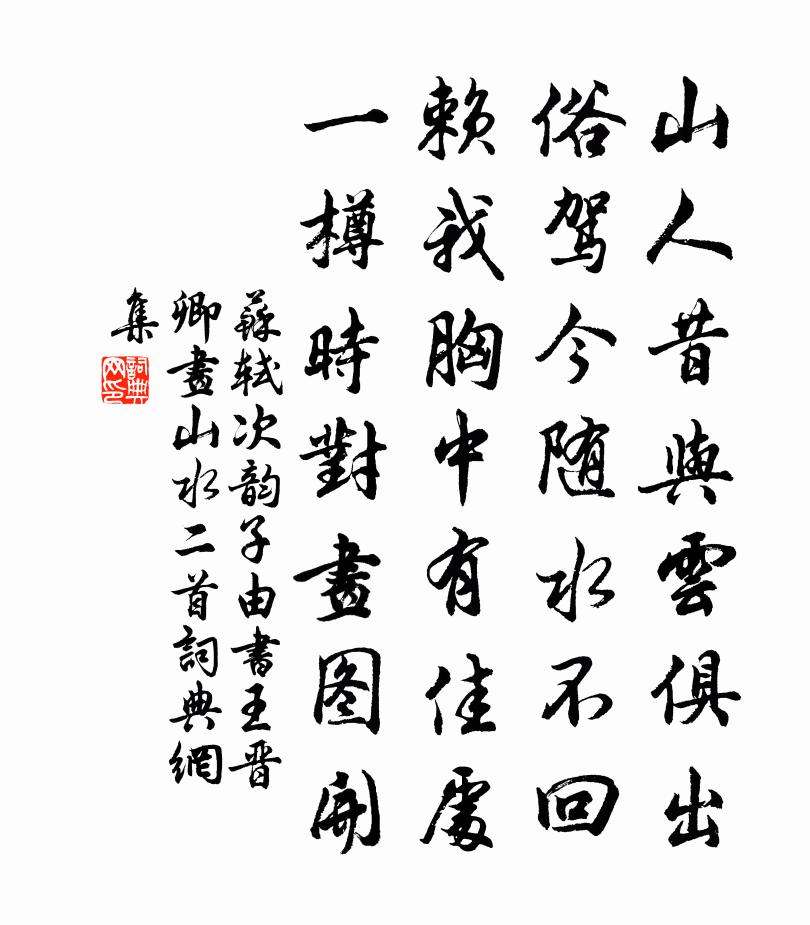 山人昔與雲俱出
俗駕今随水不回
賴我胸中有佳處
一樽時對畫图開
蘇軾次韵子由書王晋
卿畫山水二首詞典網
集
詞典網印